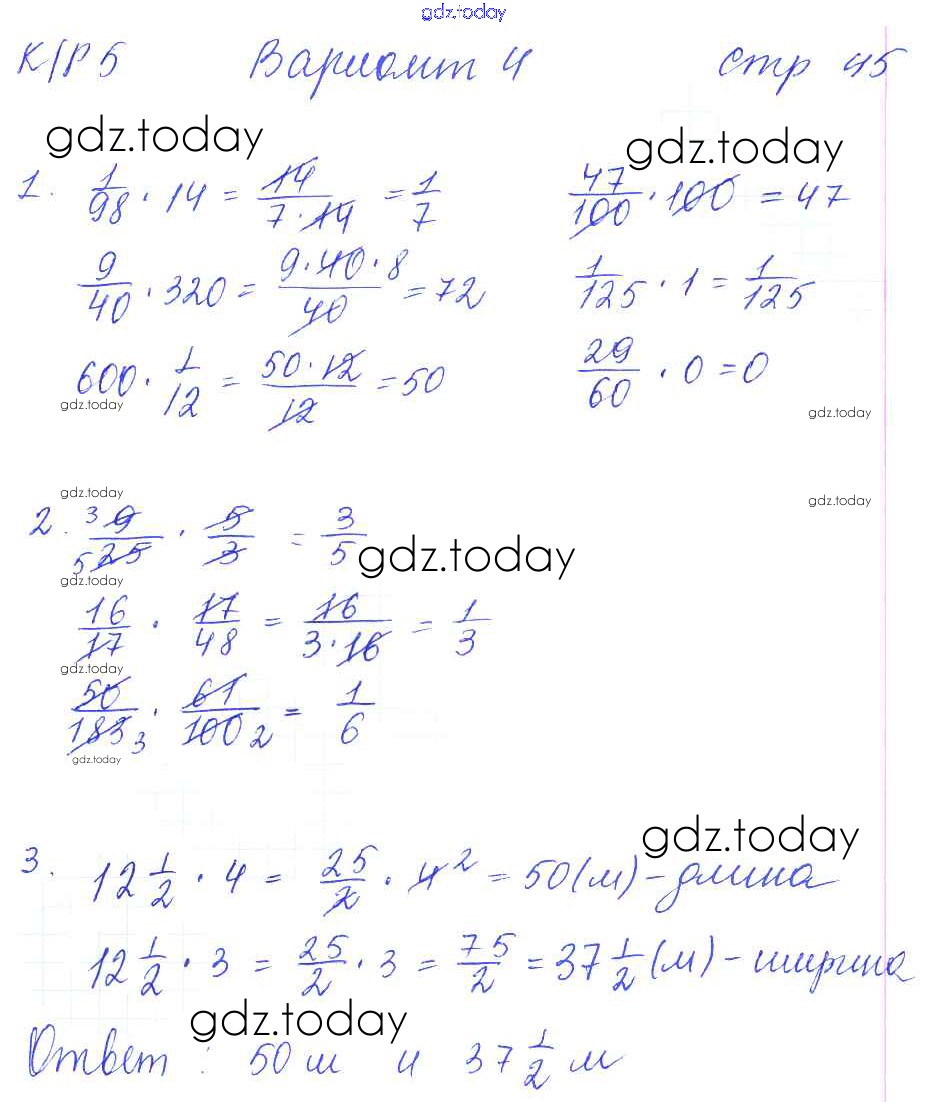 gdz.today
К/Р 5 Вариант 4 стр 45
gdz.today gdz.today
1. 1/98 · 14 = 14/(7·14) = 1/7 47/100 · 100 = 47
9/40 · 320 = (9·40·8)/40 = 72 1/125 · 1 = 1/125
600 · 1/12 = (50·12)/12 = 50 29/60 · 0 = 0
gdz.today gdz.today
gdz.today gdz.today
2. 3 9/5 25 · 5/3 = 3/5
gdz.today
gdz.today
16/17 · 17/48 = 16/(3·16) = 1/3
gdz.today
50/183 3 · 61/100 2 = 1/6
gdz.today
gdz.today
3. 12 1/2 · 4 = 25/2 · 4 2 = 50 (м) - длина
12 1/2 · 3 = 25/2 · 3 = 75/2 = 37 1/2 (м) - ширина
gdz.today
Ответ: 50 м и 37 1/2 м